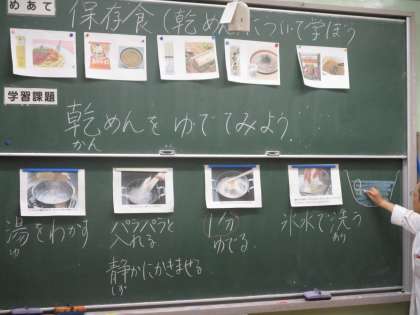 めあて
保存食(乾めん)について学ぼう
学習課題
乾めんをゆでてみよう
かん
湯をわかす
ゆ
パラパラと
入れる
静かにかきまぜる
しず
1分
ゆでる
氷水で洗う
あら